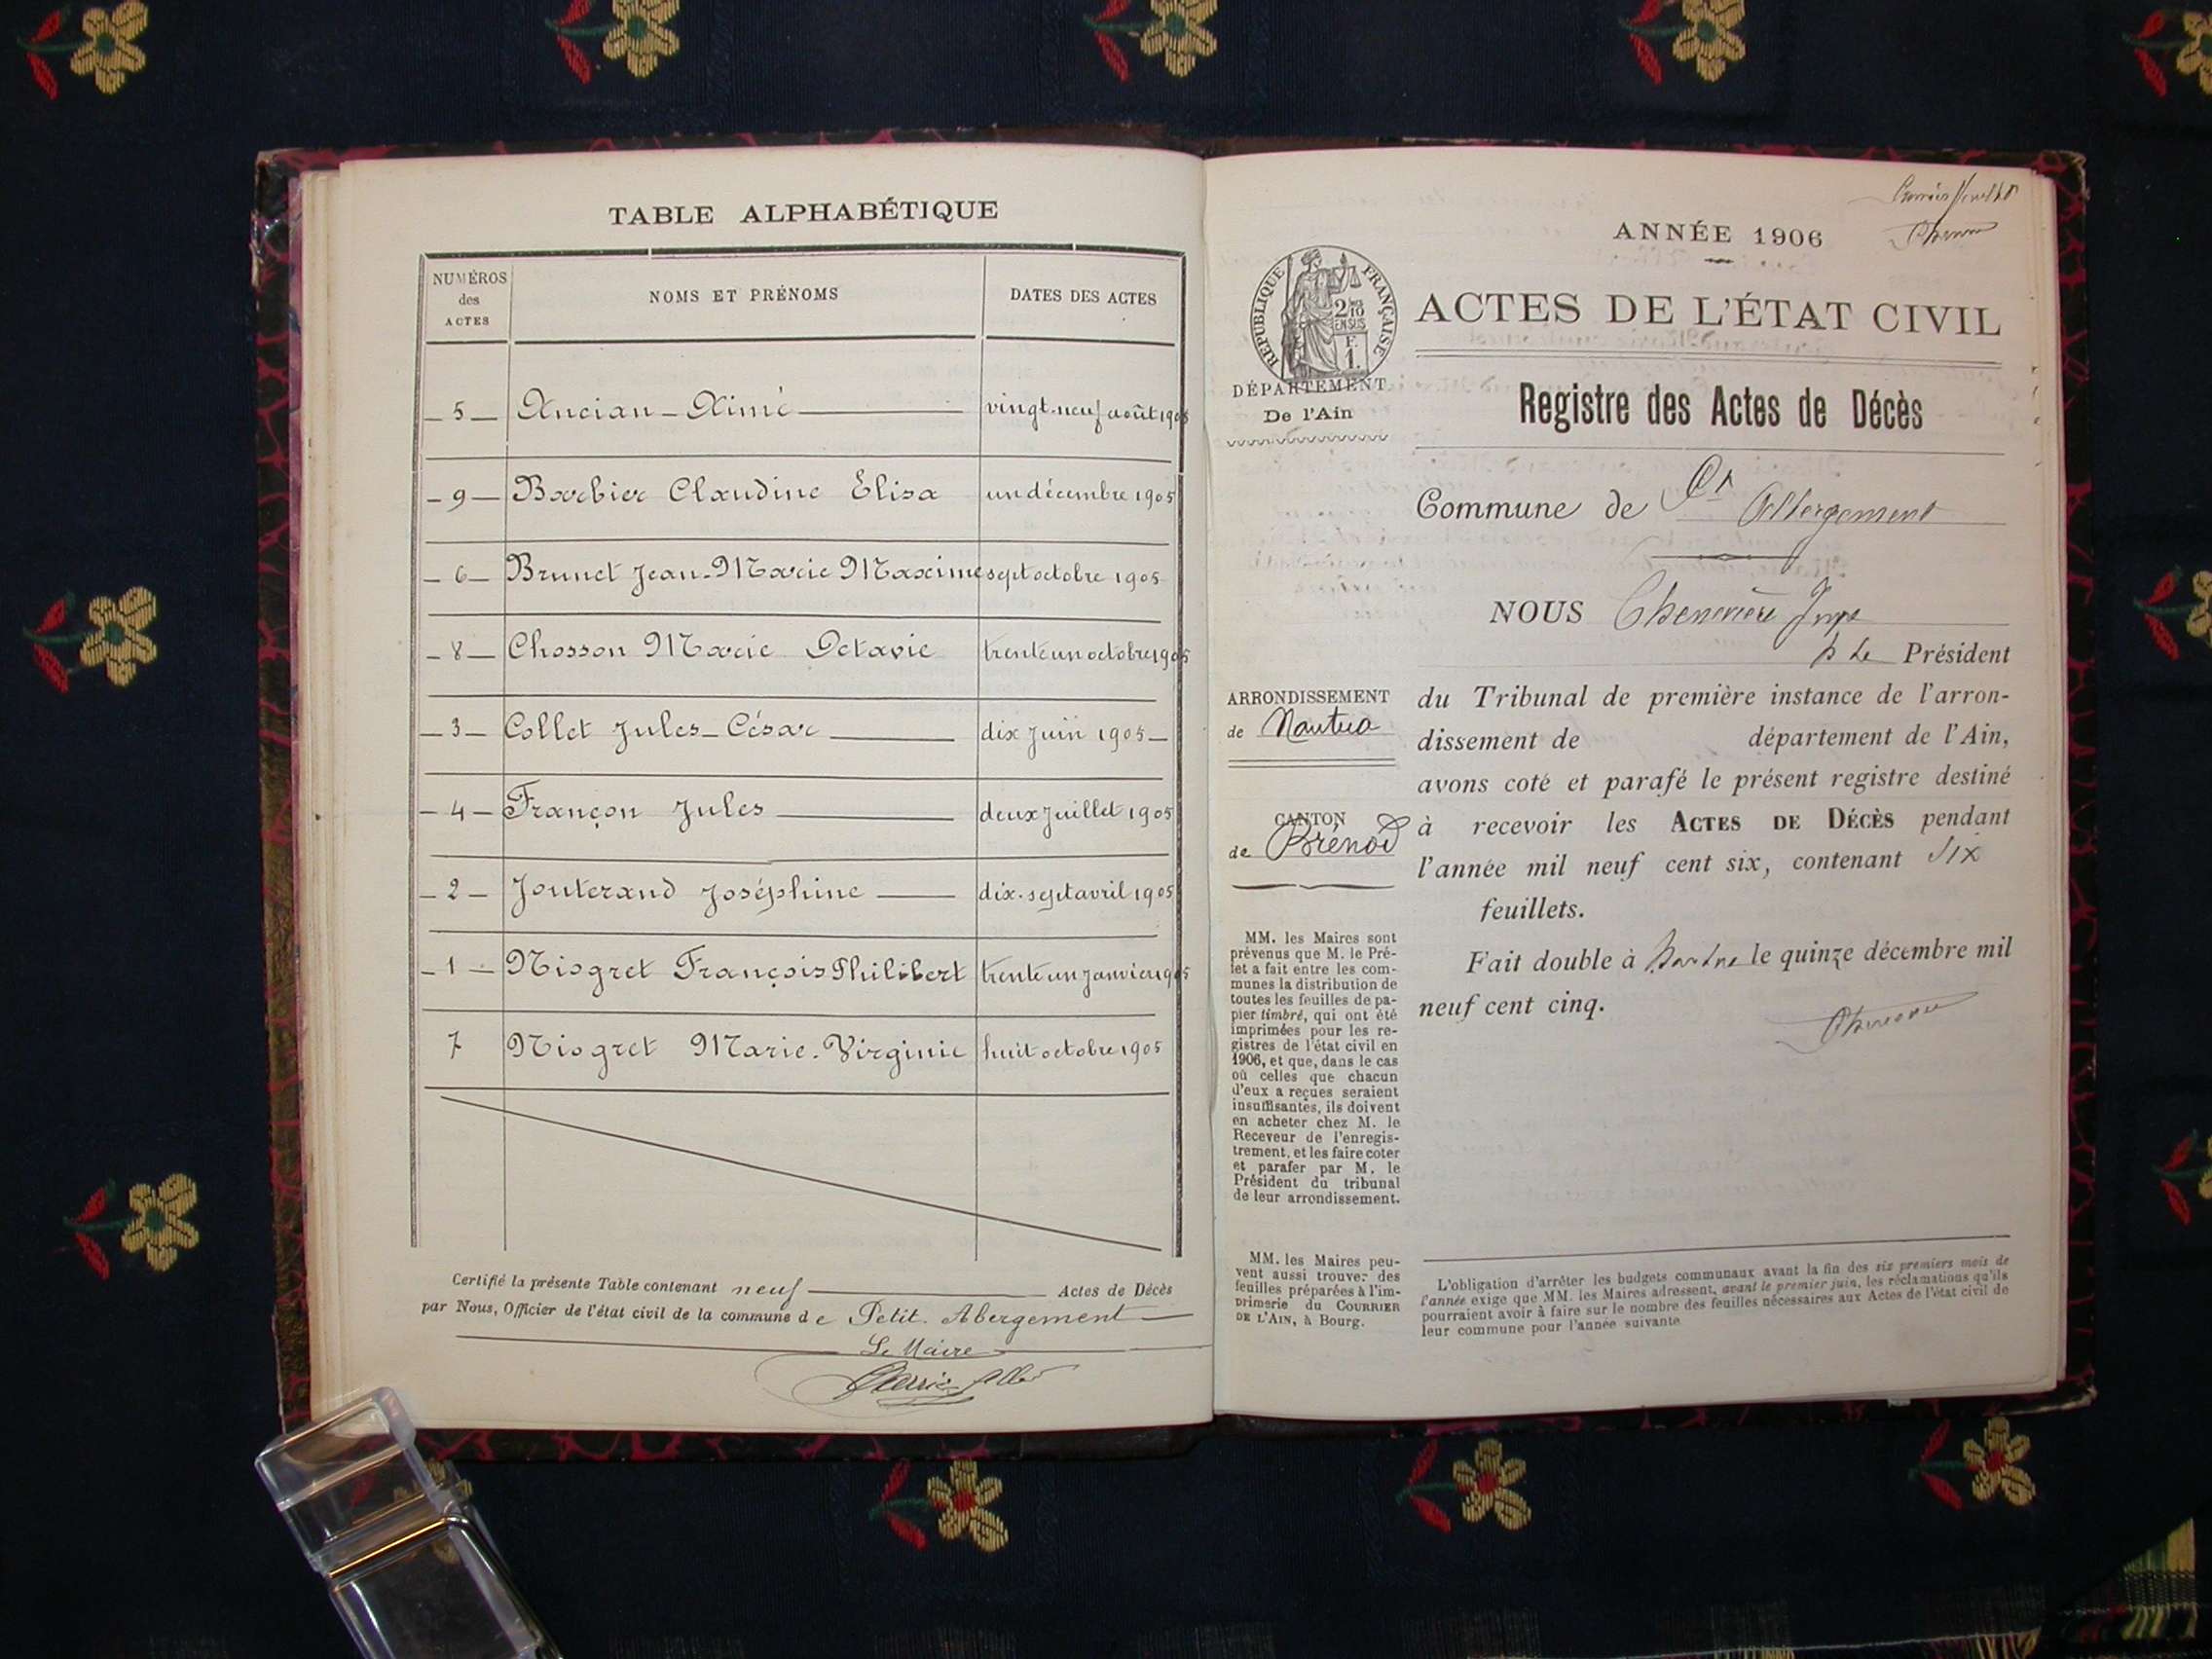 TABLE ALPHABÉTIQUE
NUMÉROS des ACTES
NOMS ET PRÉNOMS
DATES DES ACTES
— 5 — Ancian - Aimé vingt-neuf août 1905
— 9 — Barbier Claudine Élisa un décembre 1905
— 6 — Brunet Jean-Marie Maxime sept octobre 1905
— 8 — Chosson Marie Octavie trente un octobre 1905
— 3 — Collet Jules-César dix Juin 1905 —
— 4 — Françon Jules deux Juillet 1905
— 2 — Jouterand Joséphine dix-sept avril 1905
— 1 — Niogret François Philibert trente un janvier 1905
7 Niogret Marie-Virginie huit octobre 1905
Certifié la présente Table contenant neuf Actes de Décès
par Nous, Officier de l'état civil de la commune de Petit-Abergement
Le Maire
ANNÉE 1906
RÉPUBLIQUE FRANÇAISE
2/10 EN SUS
F. 1.
ACTES DE L'ÉTAT CIVIL
DÉPARTEMENT
De l'Ain
Registre des Actes de Décès
Commune de Pt Abergement
NOUS Chenevière Juge
p Le Président
ARRONDISSEMENT
de Nantua
du Tribunal de première instance de l'arron-
dissement de département de l'Ain,
avons coté et parafé le présent registre destiné
CANTON
de Brénod
à recevoir les ACTES DE DÉCÈS pendant
l'année mil neuf cent six, contenant six
feuillets.
Fait double à Nantua le quinze décembre mil
neuf cent cinq.
MM. les Maires sont
prévenus que M. le Pré-
fet a fait entre les com-
munes la distribution de
toutes les feuilles de pa-
pier timbré, qui ont été
imprimées pour les re-
gistres de l'état civil en
1906, et que, dans le cas
où celles que chacun
d'eux a reçues seraient
insuffisantes, ils doivent
en acheter chez M. le
Receveur de l'enregis-
trement, et les faire coter
et parafer par M. le
Président du tribunal
de leur arrondissement.
MM. les Maires peu-
vent aussi trouver des
feuilles préparées à l'im-
primerie du COURRIER
DE L'AIN, à Bourg.
L'obligation d'arrêter les budgets communaux avant la fin des six premiers mois de
l'année exige que MM. les Maires adressent, avant le premier juin, les réclamations qu'ils
pourraient avoir à faire sur le nombre des feuilles nécessaires aux Actes de l'état civil de
leur commune pour l'année suivante